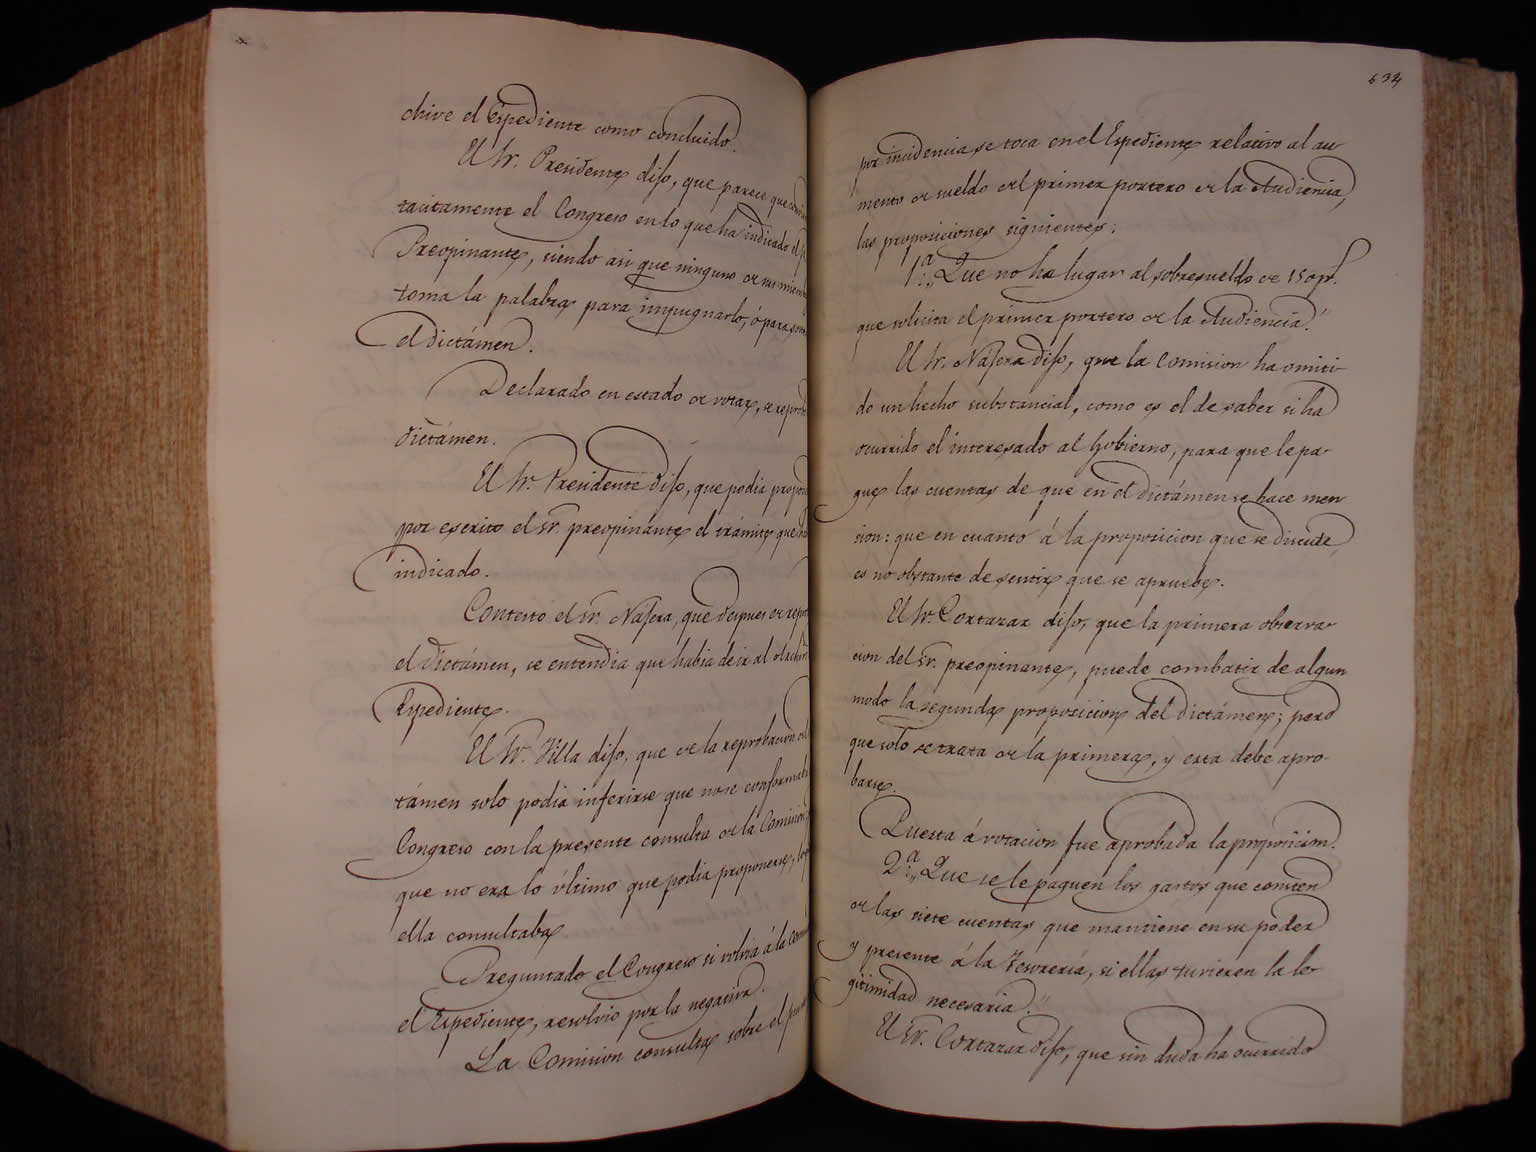 chive el Espediente como concluido.
El Sr. Presidente dijo, que parece que
tacitamente el Congreso en lo que ha indicado el
Preopinante, siendo asi que ninguno de sus
toma la palabra para impugnarlo, ó para
el dictámen.
Declarado en estado de votar, se
dictámen.
El Sr. Presidente dijo, que podia
por escrito el Sr. preopinante el trámite que
indicado.
Contestó el Sr. Násera, que despues de
el dictámen, se entendia que habia de ir al
Espediente.
El Sr. Villa dijo, que de la reprobacion
támen solo podia inferirse que no se
Congreso con la presente consulta de la Comision,
que no era lo último que podia proponerse,
ella consultaba
Preguntado el Congreso si volvia á la
el Espediente, resolvio por la negativa.
La Comision consulta sobre el
634
por incidencia se toca en el Espediente relativo al au
mento de sueldo del primer portero de la Audiencia,
las proposiciones siguientes:
1.ª „Que no ha lugar al sobresueldo de 150 p.s
que solicita el primer portero de la Audiencia."
El Sr. Násera dijo, que la Comision ha omiti-
do un hecho substancial, como es el de saber si ha
ocurrido el interesado al Gobierno, para que le pa-
gue las cuentas de que en el dictámen se hace men
sion: que en cuanto á la proposicion que se discute
es no obstante de sentir que se apruebe.
El Sr. Cortazar dijo, que la primera observa-
cion del Sr. preopinante, puede combatir de algun
modo la segunda proposicion del dictámen; pero
que solo se trata de la primera, y esta debe apro-
barse.
Puesta á votacion fue aprobada la proposicion.
2.ª „Que se le paguen los gastos que consten
de las siete cuentas que mantiene en su poder
y presente á la Tesoreria, si ellas tuvieren la le-
gitimidad necesaria."
El Sr. Cortazar dijo, que sin duda ha ocurrido